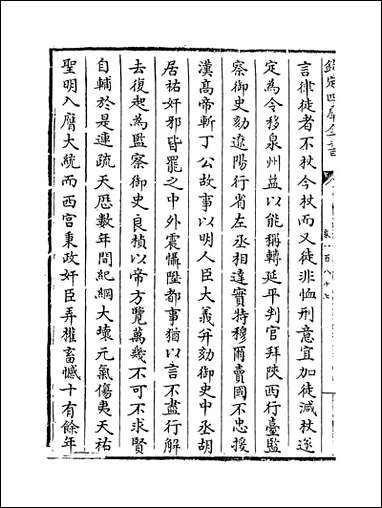 欽定四庫全書
卷一百八十七
言律徒者不杖今杖而又徒非恤刑意宜加徒減杖遂
定為令移泉州益以能稱轉延平判官拜陝西行臺監
察御史劾遼陽行省左丞相達實特穆爾賣國不忠援
漢高帝斬丁公故事以明人臣大義并劾御史中丞胡
居祐奸邪皆罷之中外震懾陞都事猶以言不盡行解
去復起為監察御史良楨以帝方覽萬幾不可不求賢
自輔於是連疏天厯數年間紀綱大壞元氣傷夷天祐
聖明入膺大統而西宫秉政奸臣弄權畜憾十有餘年